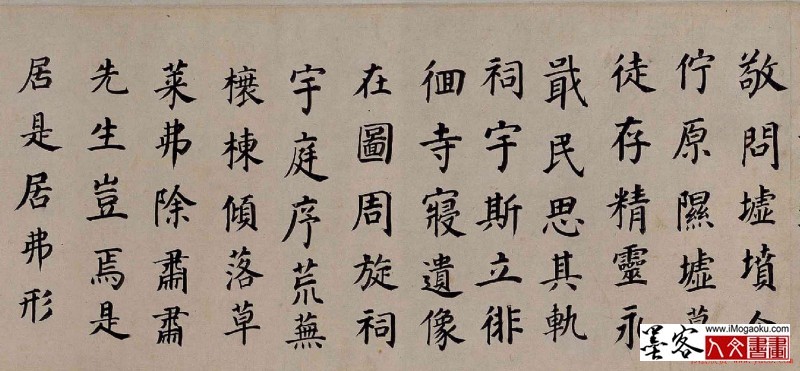 敬問墟墳
佇原隰墟墓
徒存精靈永
戢民思其軌
祠宇斯立徘
徊寺寢遺像
在圖周旋祠
宇庭序荒蕪
榱棟傾落草
萊弗除肅肅
先生豈焉是
居是居弗形
墨客
www.iMogaoku.com
人文書畫